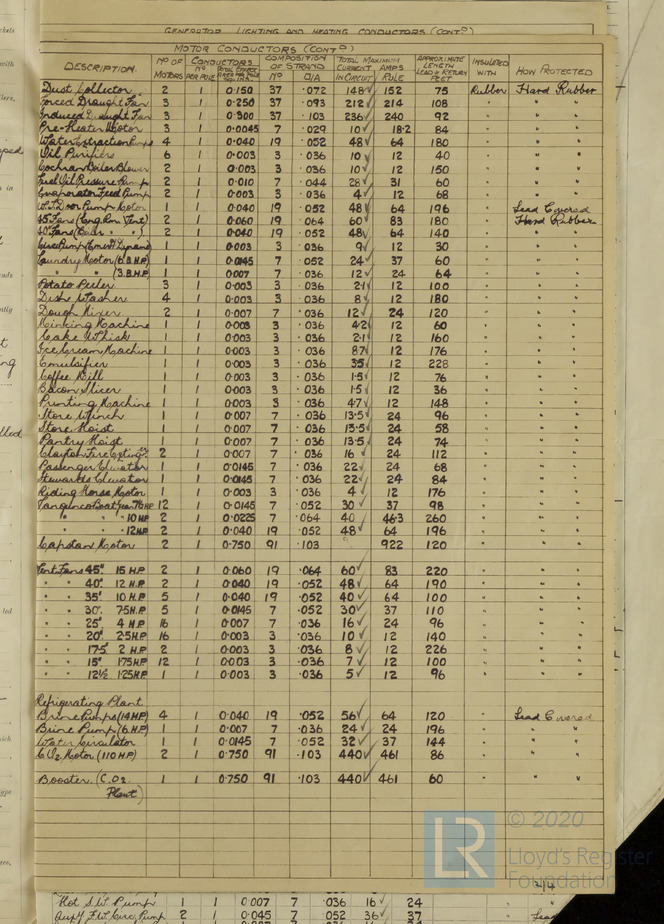 GENERATOR LIGHTING AND HEATING CONDUCTORS (CONTD)
MOTOR CONDUCTORS (CONTD)
DESCRIPTION. NO OF MOTORS CONDUCTORS NO PER POLE COMPOSITION OF STRAND NO DIA TOTAL CURRENT IN CIRCUIT MAXIMUM AMPS RULE APPROXIMATE LENGTH LEAD & RETURN FEET INSULATED WITH HOW PROTECTED
Dust Collector 2 1 0·150 37 ·072 148 152 75 Rubber Hard Rubber
Forced Draught Fan 3 1 0·250 37 ·093 212 214 108 " " "
Induced Draught Fan 3 1 0·300 37 ·103 236 240 92 " " "
Pre-Heater Motor 3 1 0·0045 7 ·029 10 18·2 84 " " "
Water Extraction Pumps 4 1 0·040 19 ·052 48 64 180 " " "
Oil Purifier 6 1 0·003 3 ·036 10 12 40 " " "
Cochran Boiler Blower 2 1 0·003 3 ·036 10 12 150 " " "
Fuel Oil Pressure Pump 2 1 0·010 7 ·044 28 31 60 " " "
Evaporator Feed Pump 2 1 0·003 3 ·036 4 12 68 " " "
W.T. Door Pump Motor 1 1 0·040 19 ·052 48 64 196 " Lead Covered
45" Fans (Eng. Rm. Vent) 2 1 0·060 19 ·064 60 83 180 " Hard Rubber
40" Fans ( " " ) 2 1 0·040 19 ·052 48 64 140 " " "
Circ Pump (Emer Dynamo) 1 1 0·003 3 ·036 9 12 30 " " "
Laundry Motor (6 B.H.P) 1 1 0·0145 7 ·052 24 37 60 " " "
" " (3 B.H.P) 1 1 0·007 7 ·036 12 24 64 " " "
Potato Peeler 3 1 0·003 3 ·036 2·1 12 100 " " "
Dish Washer 4 1 0·003 3 ·036 8 12 180 " " "
Dough Mixer 2 1 0·007 7 ·036 12 24 120 " " "
Mincing Machine 1 1 0·003 3 ·036 4·2 12 60 " " "
Cake Whisk 1 1 0·003 3 ·036 2·1 12 160 " " "
Ice Cream Machine 1 1 0·003 3 ·036 8·7 12 176 " " "
Emulsifier 1 1 0·003 3 ·036 3·5 12 228 " " "
Coffee Mill 1 1 0·003 3 ·036 1·5 12 76 " " "
Bacon Slicer 1 1 0·003 3 ·036 1·5 12 36 " " "
Printing Machine 1 1 0·003 3 ·036 4·7 12 148 " " "
Store Winch 1 1 0·007 7 ·036 13·5 24 96 " " "
Store Hoist 1 1 0·007 7 ·036 13·5 24 58 " " "
Pantry Hoist 1 1 0·007 7 ·036 13·5 24 74 " " "
Clayton Fire Exting 2 1 0·007 7 ·036 16 24 112 " " "
Passenger Elevator 1 1 0·0145 7 ·036 22 24 68 " " "
Stewards Elevator 1 1 0·0145 7 ·036 22 24 84 " " "
Riding Horse Motor 1 1 0·003 3 ·036 4 12 176 " " "
Boat Gear 7½ HP 12 1 0·0145 7 ·052 30 37 98 " " "
" " 10 HP 2 1 0·0225 7 ·064 40 46·3 260 " " "
" " 12 HP 2 1 0·040 19 ·052 48 64 196 " " "
Capstan Motor 2 1 0·750 91 ·103 922 120 " " "
Vent Fans 45" 15 H.P 2 1 0·060 19 ·064 60 83 220 " " "
" " 40" 12 H.P 2 1 0·040 19 ·052 48 64 190 " " "
" " 35" 10 H.P 5 1 0·040 19 ·052 40 64 100 " " "
" " 30" 7·5 H.P 5 1 0·0145 7 ·052 30 37 110 " " "
" " 25" 4 H.P 16 1 0·007 7 ·036 16 24 96 " " "
" " 20" 2·5 H.P 16 1 0·003 3 ·036 10 12 140 " " "
" " 17·5" 2 H.P 2 1 0·003 3 ·036 8 12 226 " " "
" " 15" 1·75 H.P 12 1 0·003 3 ·036 7 12 100 " " "
" " 12½ 1·25 H.P 1 1 0·003 3 ·036 5 12 96 " " "
Refrigerating Plant
Brine Pumps (14 H.P) 4 1 0·040 19 ·052 56 64 120 " Lead Covered
Brine Pump (6 H.P) 1 1 0·007 7 ·036 24 24 196 " " "
Water Circulator 1 1 0·0145 7 ·052 32 37 144 " " "
CO2 Motor (110 H.P) 2 1 0·750 91 ·103 440 461 86 " " "
Booster (C.O2 1 1 0·750 91 ·103 440 461 60 " " "
Plant)
© 2020
LR
Lloyd's Register
Foundation
2/4
Hot S.W. Pump 1 1 0·007 7 ·036 16 24
Aux F.W. Circ. Pump 2 1 0·045 7 ·052 36 37 Lead